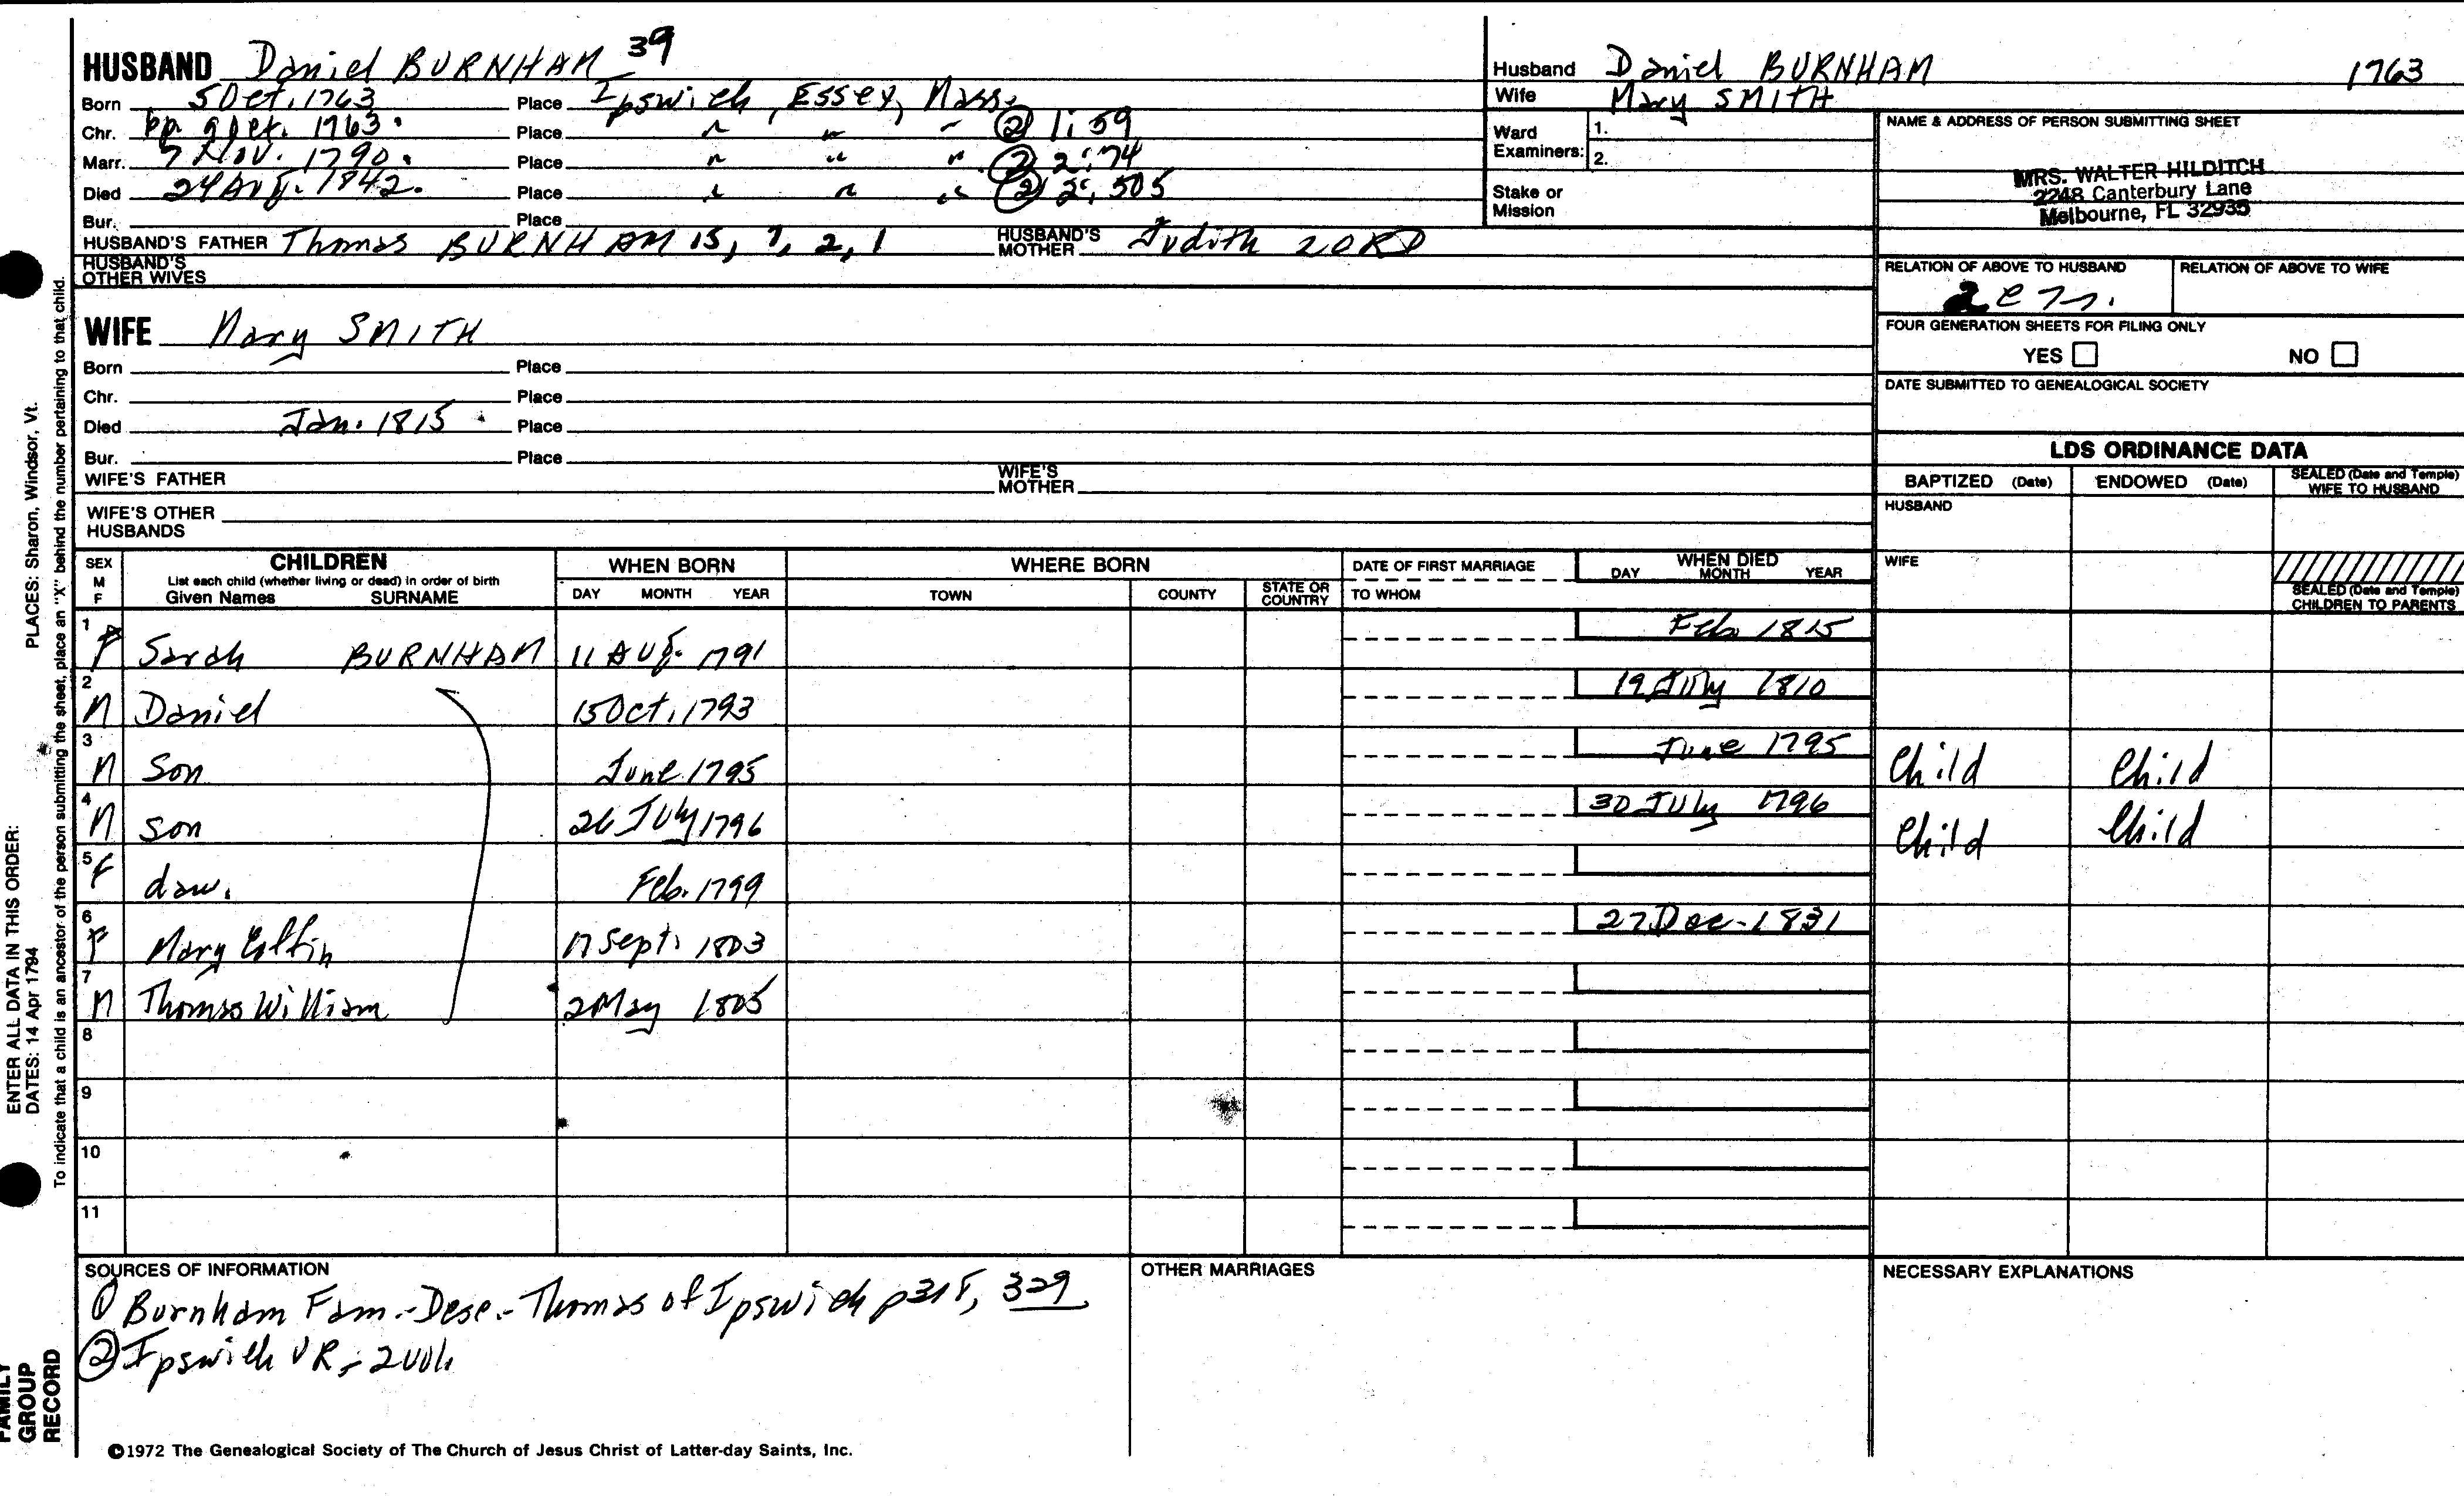 HUSBAND Daniel BURNHAM 39
Born 5 Oct. 1763 Place Ipswich, Essex, Mass.
Chr. bp 9 Oct. 1763. Place " " " ② 1:59
Marr. 7 Nov. 1790. Place " " " ② 2:74
Died 24 Aug. 1842. Place " " " ② 2:505
Bur. Place
HUSBAND'S FATHER Thomas BURNHAM 15, 7, 2, 1 HUSBAND'S MOTHER Judith LORD
HUSBAND'S OTHER WIVES
WIFE Mary SMITH
Born Place
Chr. Place
Died Jan. 1815 Place
Bur. Place
WIFE'S FATHER WIFE'S MOTHER
WIFE'S OTHER HUSBANDS
Husband Daniel BURNHAM 1763
Wife Mary SMITH
Ward Examiners: 1.
2.
Stake or Mission
NAME & ADDRESS OF PERSON SUBMITTING SHEET
MRS. WALTER HILDITCH
2248 Canterbury Lane
Melbourne, FL 32935
RELATION OF ABOVE TO HUSBAND RELATION OF ABOVE TO WIFE
FOUR GENERATION SHEETS FOR FILING ONLY
YES NO
DATE SUBMITTED TO GENEALOGICAL SOCIETY
LDS ORDINANCE DATA
BAPTIZED (Date) ENDOWED (Date) SEALED (Date and Temple) WIFE TO HUSBAND
HUSBAND
WIFE
SEALED (Date and Temple) CHILDREN TO PARENTS
SEX M F CHILDREN WHEN BORN WHERE BORN DATE OF FIRST MARRIAGE WHEN DIED
List each child (whether living or dead) in order of birth
Given Names SURNAME DAY MONTH YEAR TOWN COUNTY STATE OR COUNTRY TO WHOM DAY MONTH YEAR
1 F Sarah BURNHAM 11 Aug. 1791 Feb 1815
2 M Daniel 15 Oct. 1793 19 July 1810
3 M Son June 1795 June 1795 Child Child
4 M son 26 July 1796 30 July 1796 Child Child
5 F dau. Feb. 1799
6 F Mary Coffin 17 Sept. 1803 27 Dec. 1831
7 M Thomas William 2 May 1805
8
9
10
11
SOURCES OF INFORMATION
① Burnham Fam.-Desc.-Thomas of Ipswich 329
② Ipswich VR-2 vol.
OTHER MARRIAGES
NECESSARY EXPLANATIONS
©1972 The Genealogical Society of The Church of Jesus Christ of Latter-day Saints, Inc.
ENTER ALL DATA IN THIS ORDER:
DATES: 14 Apr 1794 PLACES: Sharon, Windsor, Vt.
To indicate that a child is an ancestor of the person submitting the sheet, place an "X" behind the number pertaining to that child.
FAMILY
GROUP
RECORD